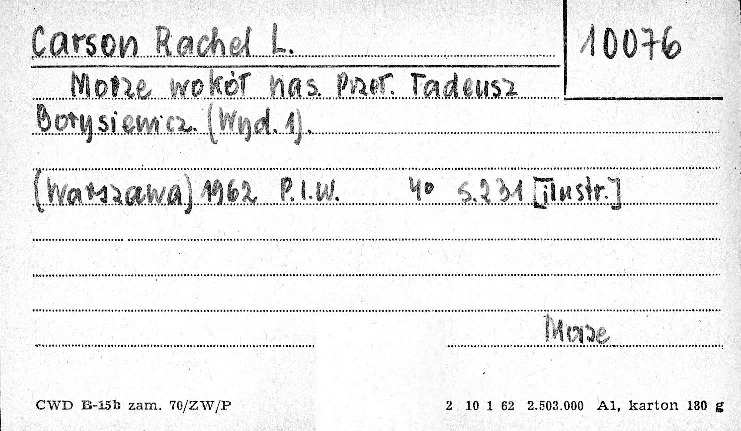 Carson Rachel L.
10076
Morze wokół nas. Przeł. Tadeusz
Borysiewicz. (Wyd. 1).
(Warszawa) 1962 P.I.W. 4° s. 231 [ilustr.]
Morze
CWD B-15b zam. 70/ZW/P
2 10 1 62 2.503.000 A1, karton 180 g